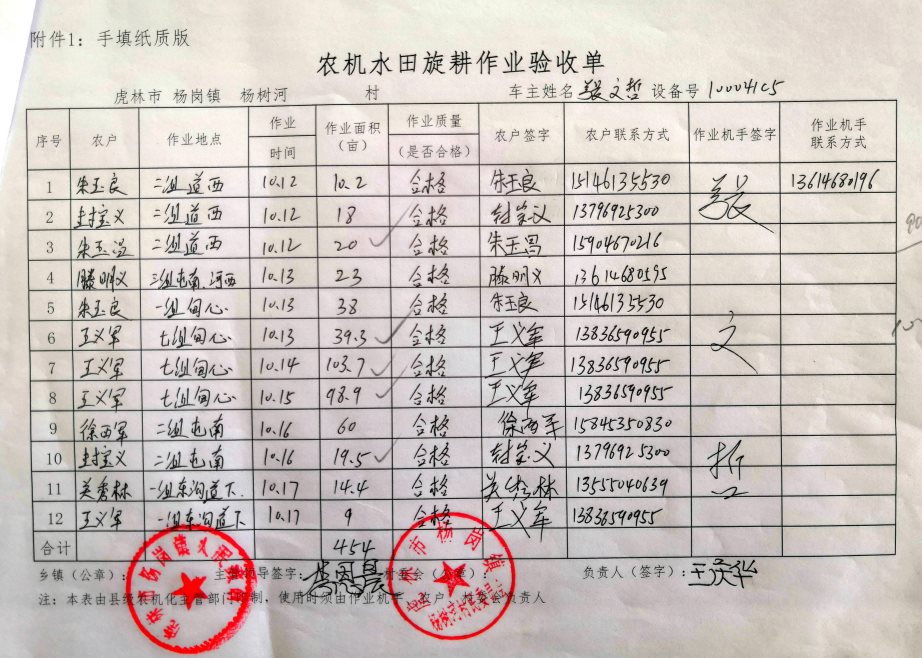 附件1：手填纸质版
农机水田旋耕作业验收单
虎林市 杨岗镇 杨树河 村 车主姓名 张文哲 设备号 100041C5
序号 农户 作业地点 作业时间 作业面积（亩） 作业质量（是否合格） 农户签字 农户联系方式 作业机手签字 作业机手联系方式
1 朱玉良 二组道西 10.12 10.2 合格 朱玉良 15146135530 张 13614680196
2 封宝义 二组道西 10.12 18 合格 封宝义 13796925300
3 朱玉 二组道西 10.12 20 合格 朱玉 15904670216
4 滕明义 三组屯南河西 10.13 23 合格 滕明义 13614680595
5 朱玉良 一组甸心 10.13 38 合格 朱玉良 15146135530
6 王义军 七组甸心 10.13 39.3 合格 王义军 13836590955 文
7 王义军 七组甸心 10.14 103.7 合格 王义军 13836590955
8 王义军 七组甸心 10.15 98.9 合格 王义军 13836590955
9 徐西军 二组屯南 10.16 60 合格 徐西军 15845350830
10 封宝义 二组屯南 10.16 19.5 合格 封宝义 13796925300 哲
11 关秀林 一组东沟道下 10.17 14.4 合格 关秀林 13555040639
12 王义军 一组东沟道下 10.17 9 合格 王义军 13836590955
合计 454
乡镇（公章）： 主管领导签字： 村委会（公章）： 负责人（签字）：王庆华
注：本表由县级农机化主管部门印制，使用时须由作业机手、农户、村委会负责人